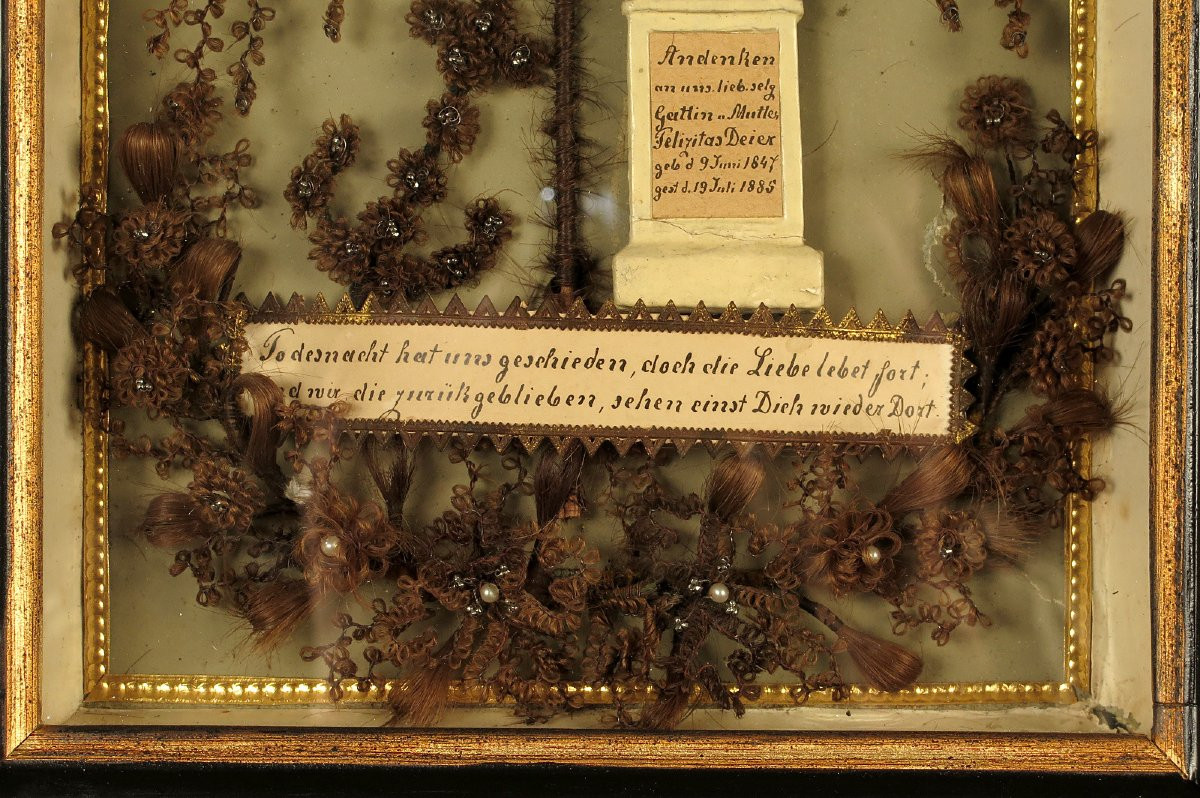 Andenken
an uns. lieb. selg
Gattin u. Mutter
Felizitas Deier
geb. d. 9 Juni 1847
gest d. 19 Juli 1885
Todesnacht hat uns geschieden, doch die Liebe lebet fort;
nd wir die zurük geblieben, sehen einst Dich wieder Dort.